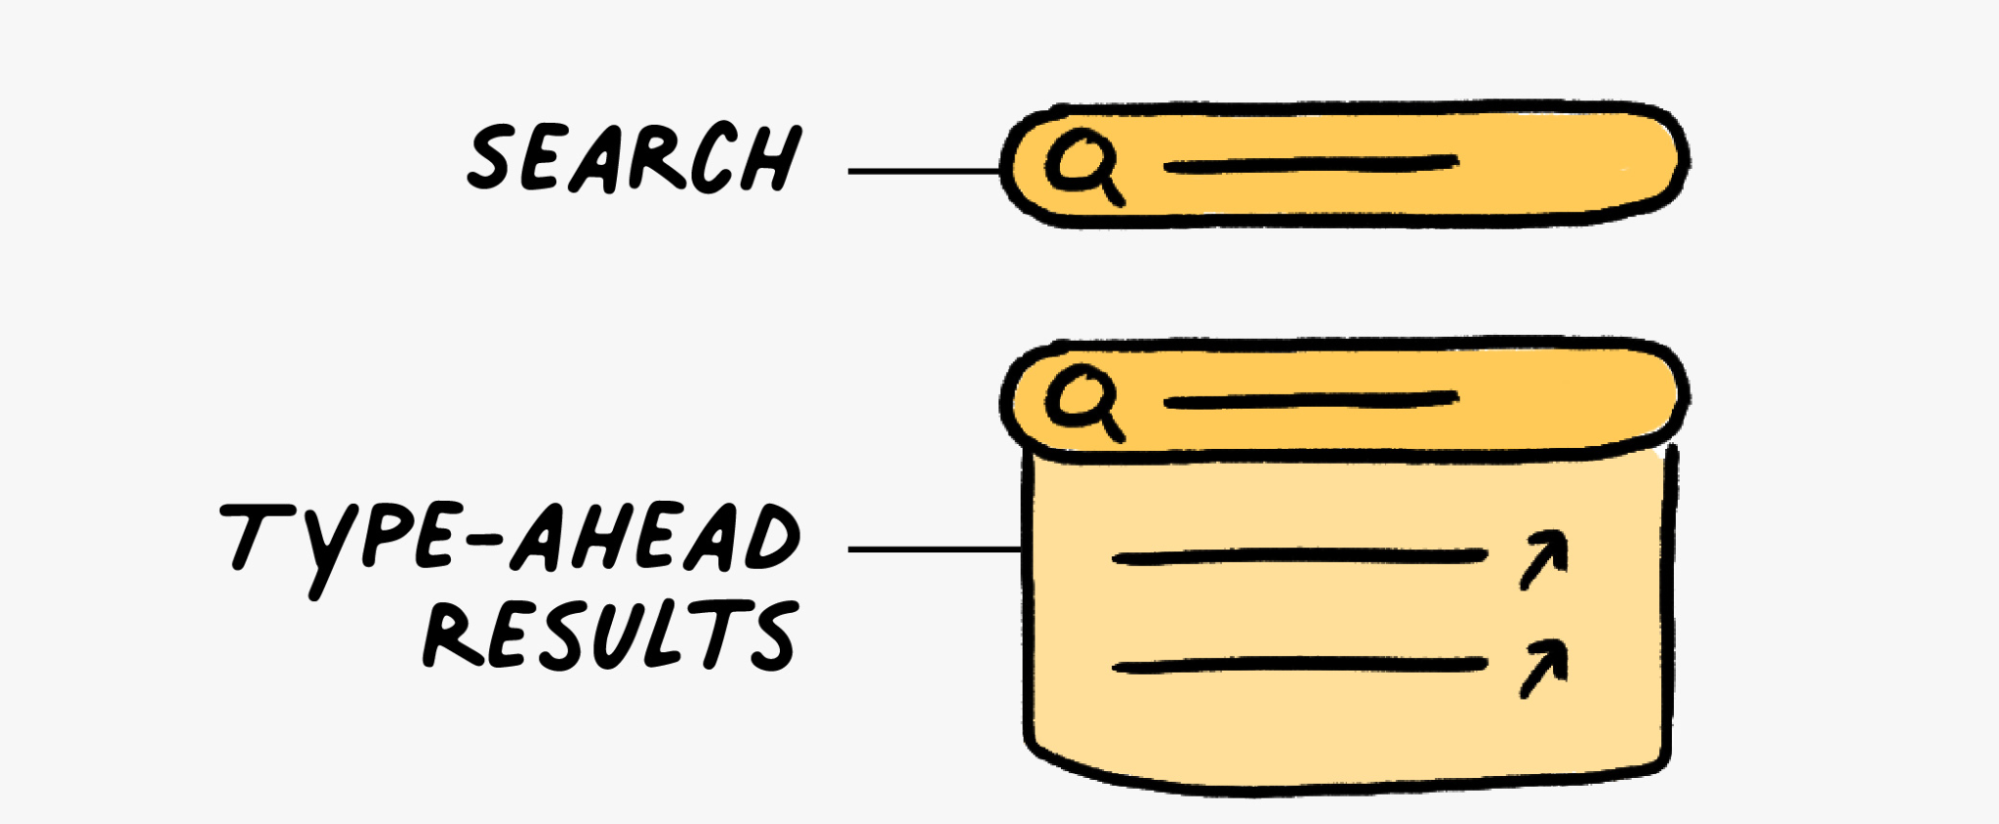 SEARCH
TYPE-AHEAD
RESULTS